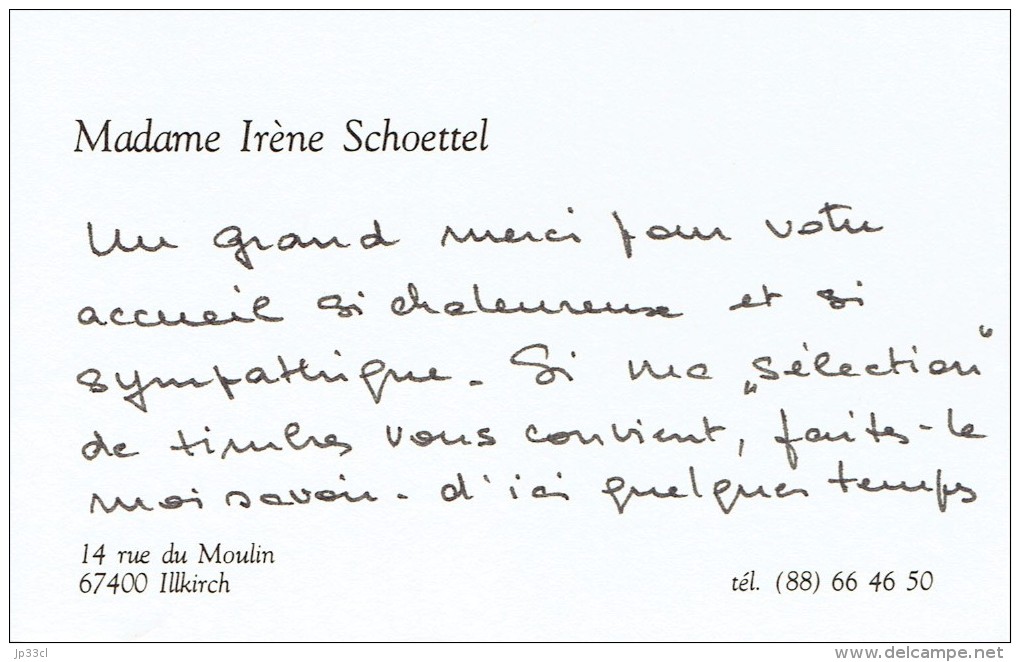 Madame Irène Schoettel
Un grand merci pour votre
accueil si chaleureux et si
sympathique. Si ma „sélection"
de timbres vous convient, faites-le
moi savoir. d'ici quelques temps
14 rue du Moulin
67400 Illkirch
tél. (88) 66 46 50
jp33cl
www.delcampe.net